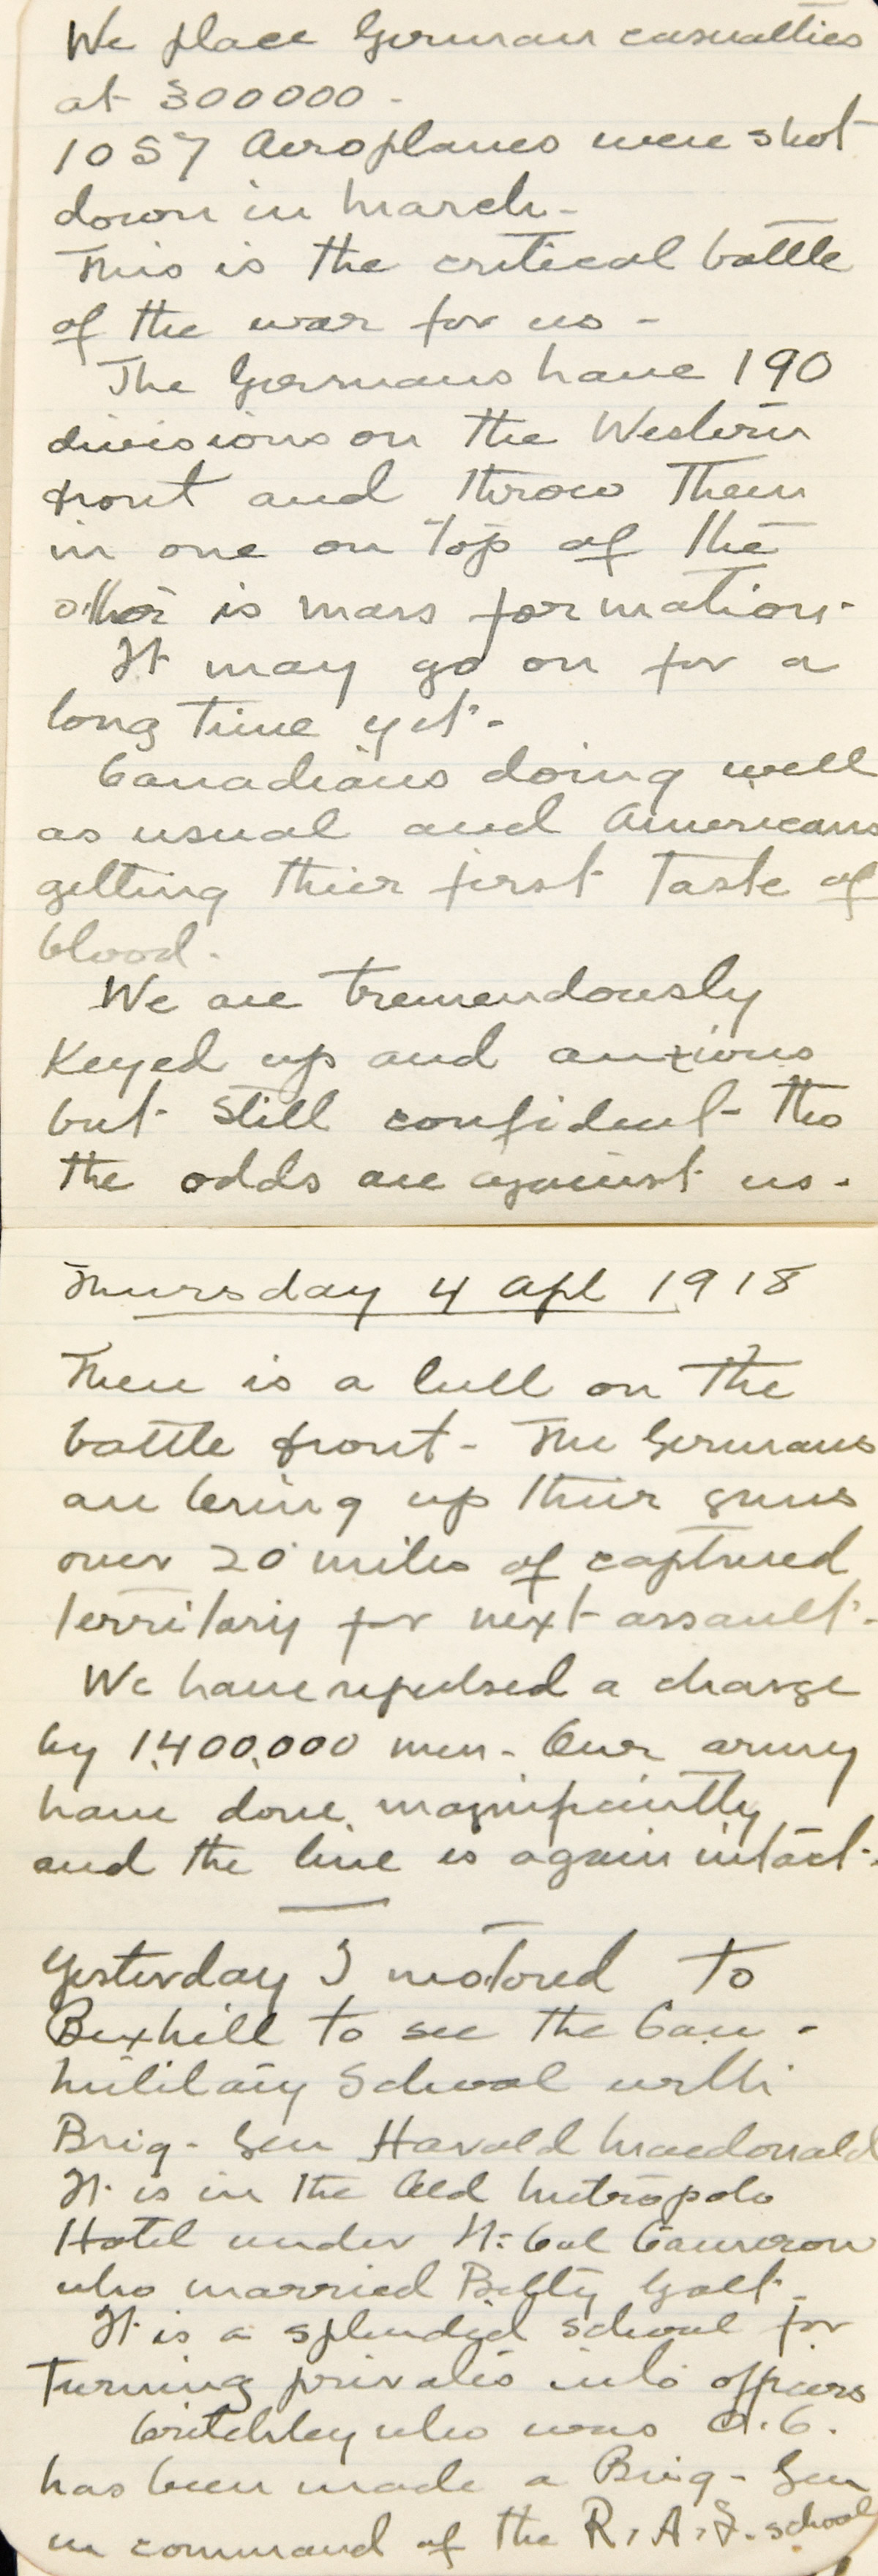 We place German casualties
at 300000 -
1057 Aeroplanes were shot
down in March -
This is the critical battle
of the war for us -
The Germans have 190
divisions on the Western
front and throw them
in one on top of the
other is mass formation -
It may go on for a
long time yet -
Canadians doing well
as usual and Americans
getting thier first taste of
blood.
We are tremendously
Keyed up and anxious
but still confident - tho
the odds are against us -
Thursday 4 Apl 1918
There is a lull on the
battle front - The Germans
are bring up their guns
over 20 miles of captured
territory for next assault -
We have repulsed a charge
by 1,400,000 men - Our army
have done magnificintly
and the line is again intact -
Yesterday I motored to
Bexhill to see the Can -
Military School with
Brig - Gen Harold Macdonald
It is in the Old Metropolo
Hotel under Lt: Col Cameron
who married Betty Galt -
It is a splendid school for
turning privates into officers
Critchley who was O.C.
has been made a Brig - Gen
in command of the R.A.F. school